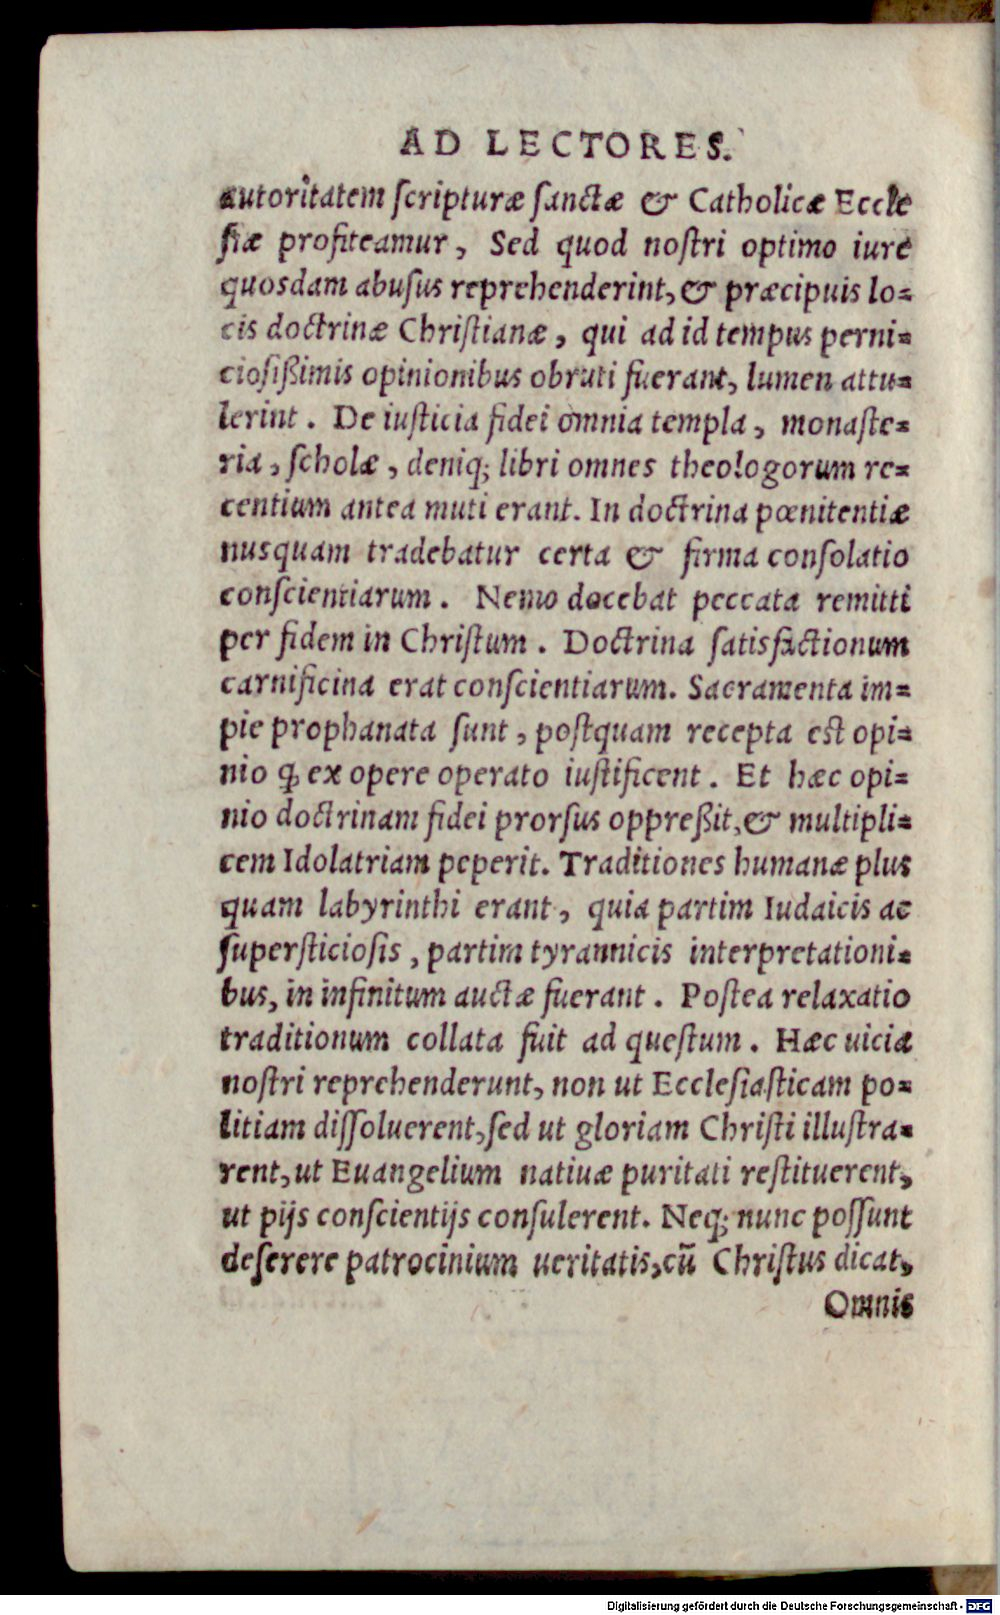 AD LECTORES.
autoritatem ſcripturæ ſanctæ & Catholicæ Eccle
ſiæ profiteamur, Sed quod noſtri optimo iure
quosdam abuſus reprehenderint, & præcipuis lo=
cis doctrinæ Chriſtianæ, qui ad id tempus perni=
cioſißimis opinionibus obruti fuerant, lumen attu=
lerint. De iuſticia fidei omnia templa, monaſte=
ria, ſcholæ, deniq; libri omnes theologorum re=
centium antea muti erant. In doctrina pœnitentiæ
nusquam tradebatur certa & firma conſolatio
conſcientiarum. Nemo docebat peccata remitti
per fidem in Chriſtum. Doctrina ſatisfactionum
carnificina erat conſcientiarum. Sacramenta im=
pie prophanata ſunt, poſtquam recepta est opi=
nio ꝙ ex opere operato iuſtificent. Et hæc opi=
nio doctrinam fidei prorſus oppreßit, & multipli=
cem Idolatriam peperit. Traditiones humanæ plus
quam labyrinthi erant, quia partim Iudaicis ac
ſuperſticioſis, partim tyrannicis interpretationi=
bus, in infinitum auctæ fuerant. Poſtea relaxatio
traditionum collata fuit ad queſtum. Hæc uicia
noſtri reprehenderunt, non ut Eccleſiaſticam po=
litiam diſſoluerent, ſed ut gloriam Chriſti illuſtra=
rent, ut Euangelium natiuæ puritati reſtituerent,
ut pijs conſcientijs conſulerent. Neq; nunc poſſunt
deſerere patrocinium ueritatis, cū Chriſtus dicat,
Omnis
Digitalisierung gefördert durch die Deutsche Forschungsgemeinschaft - DFG